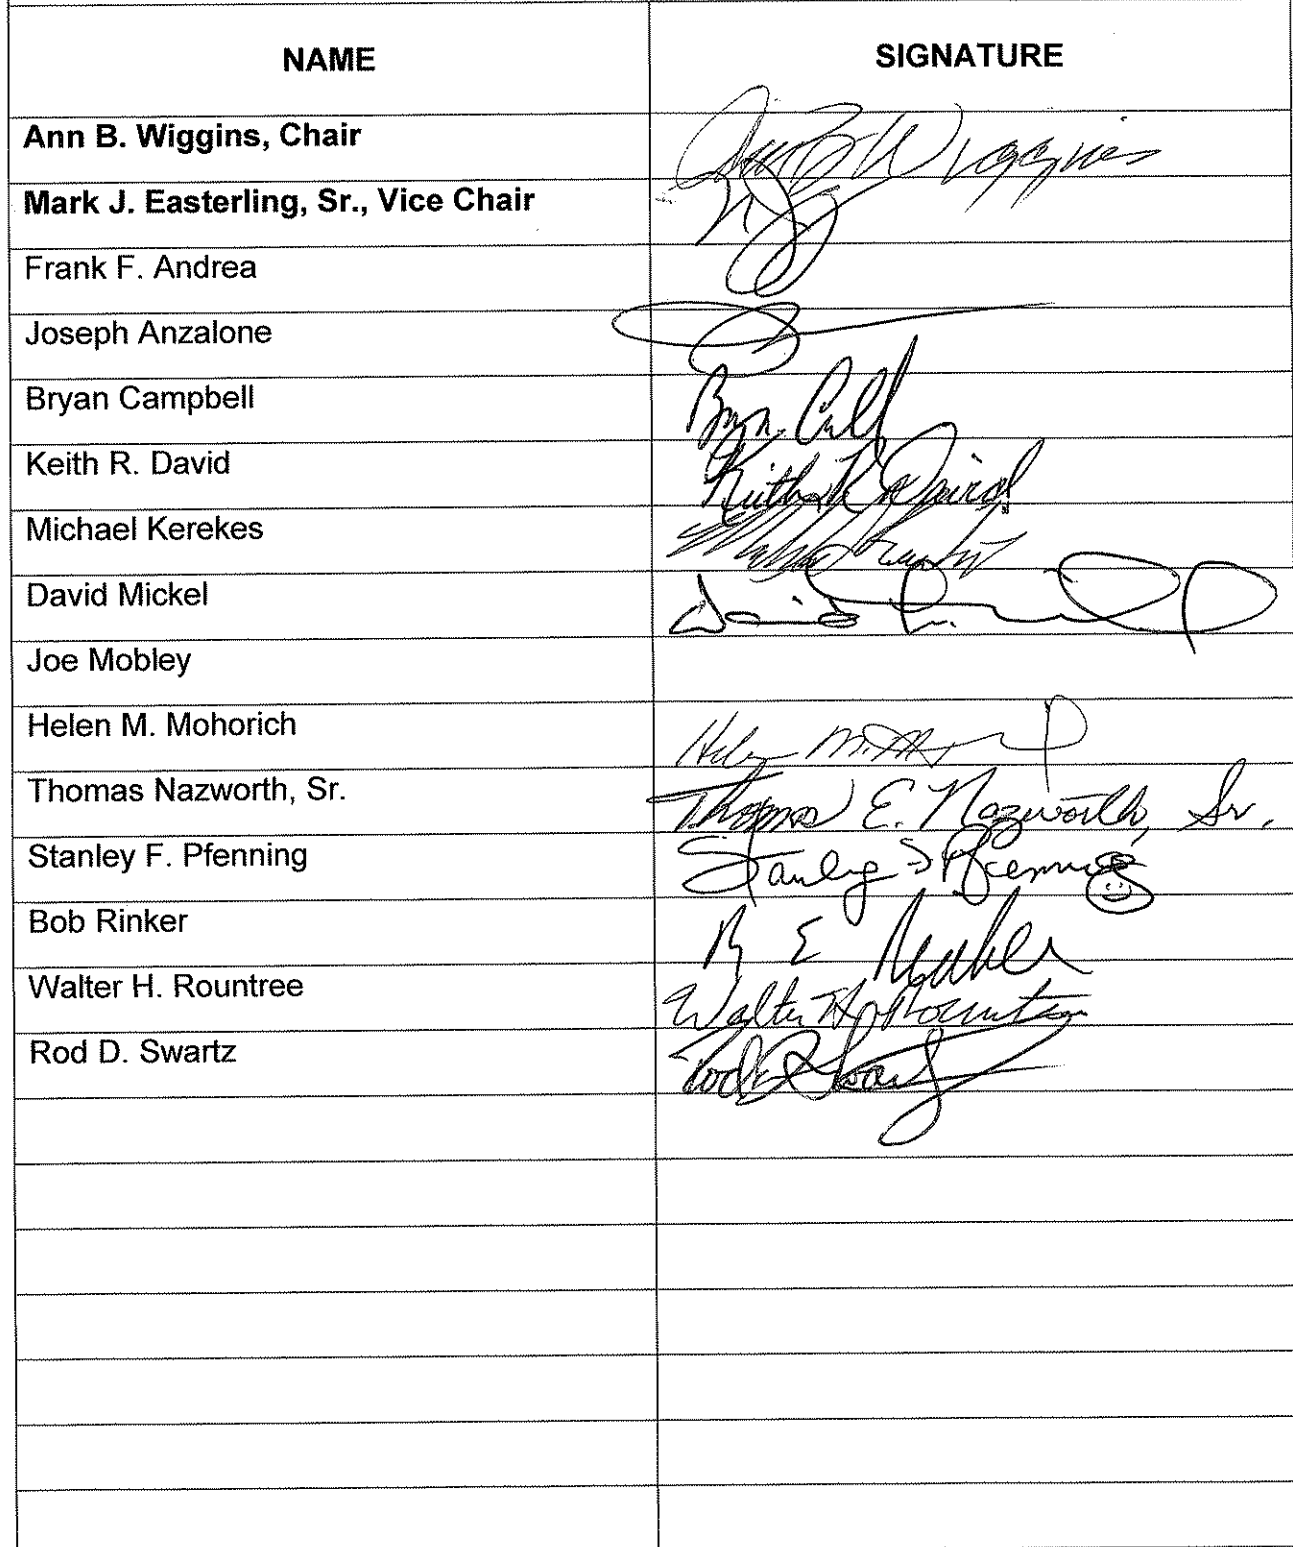 NAME SIGNATURE
Ann B. Wiggins, Chair Ann B Wiggins
Mark J. Easterling, Sr., Vice Chair
Frank F. Andrea
Joseph Anzalone
Bryan Campbell
Keith R. David Keith R David
Michael Kerekes
David Mickel David
Joe Mobley
Helen M. Mohorich Helen M.
Thomas Nazworth, Sr. Thomas E. Nazworth, Sr.
Stanley F. Pfenning Stanley F Pfenning
Bob Rinker R E Rinker
Walter H. Rountree Walter H. Rountree
Rod D. Swartz Rod D Swartz